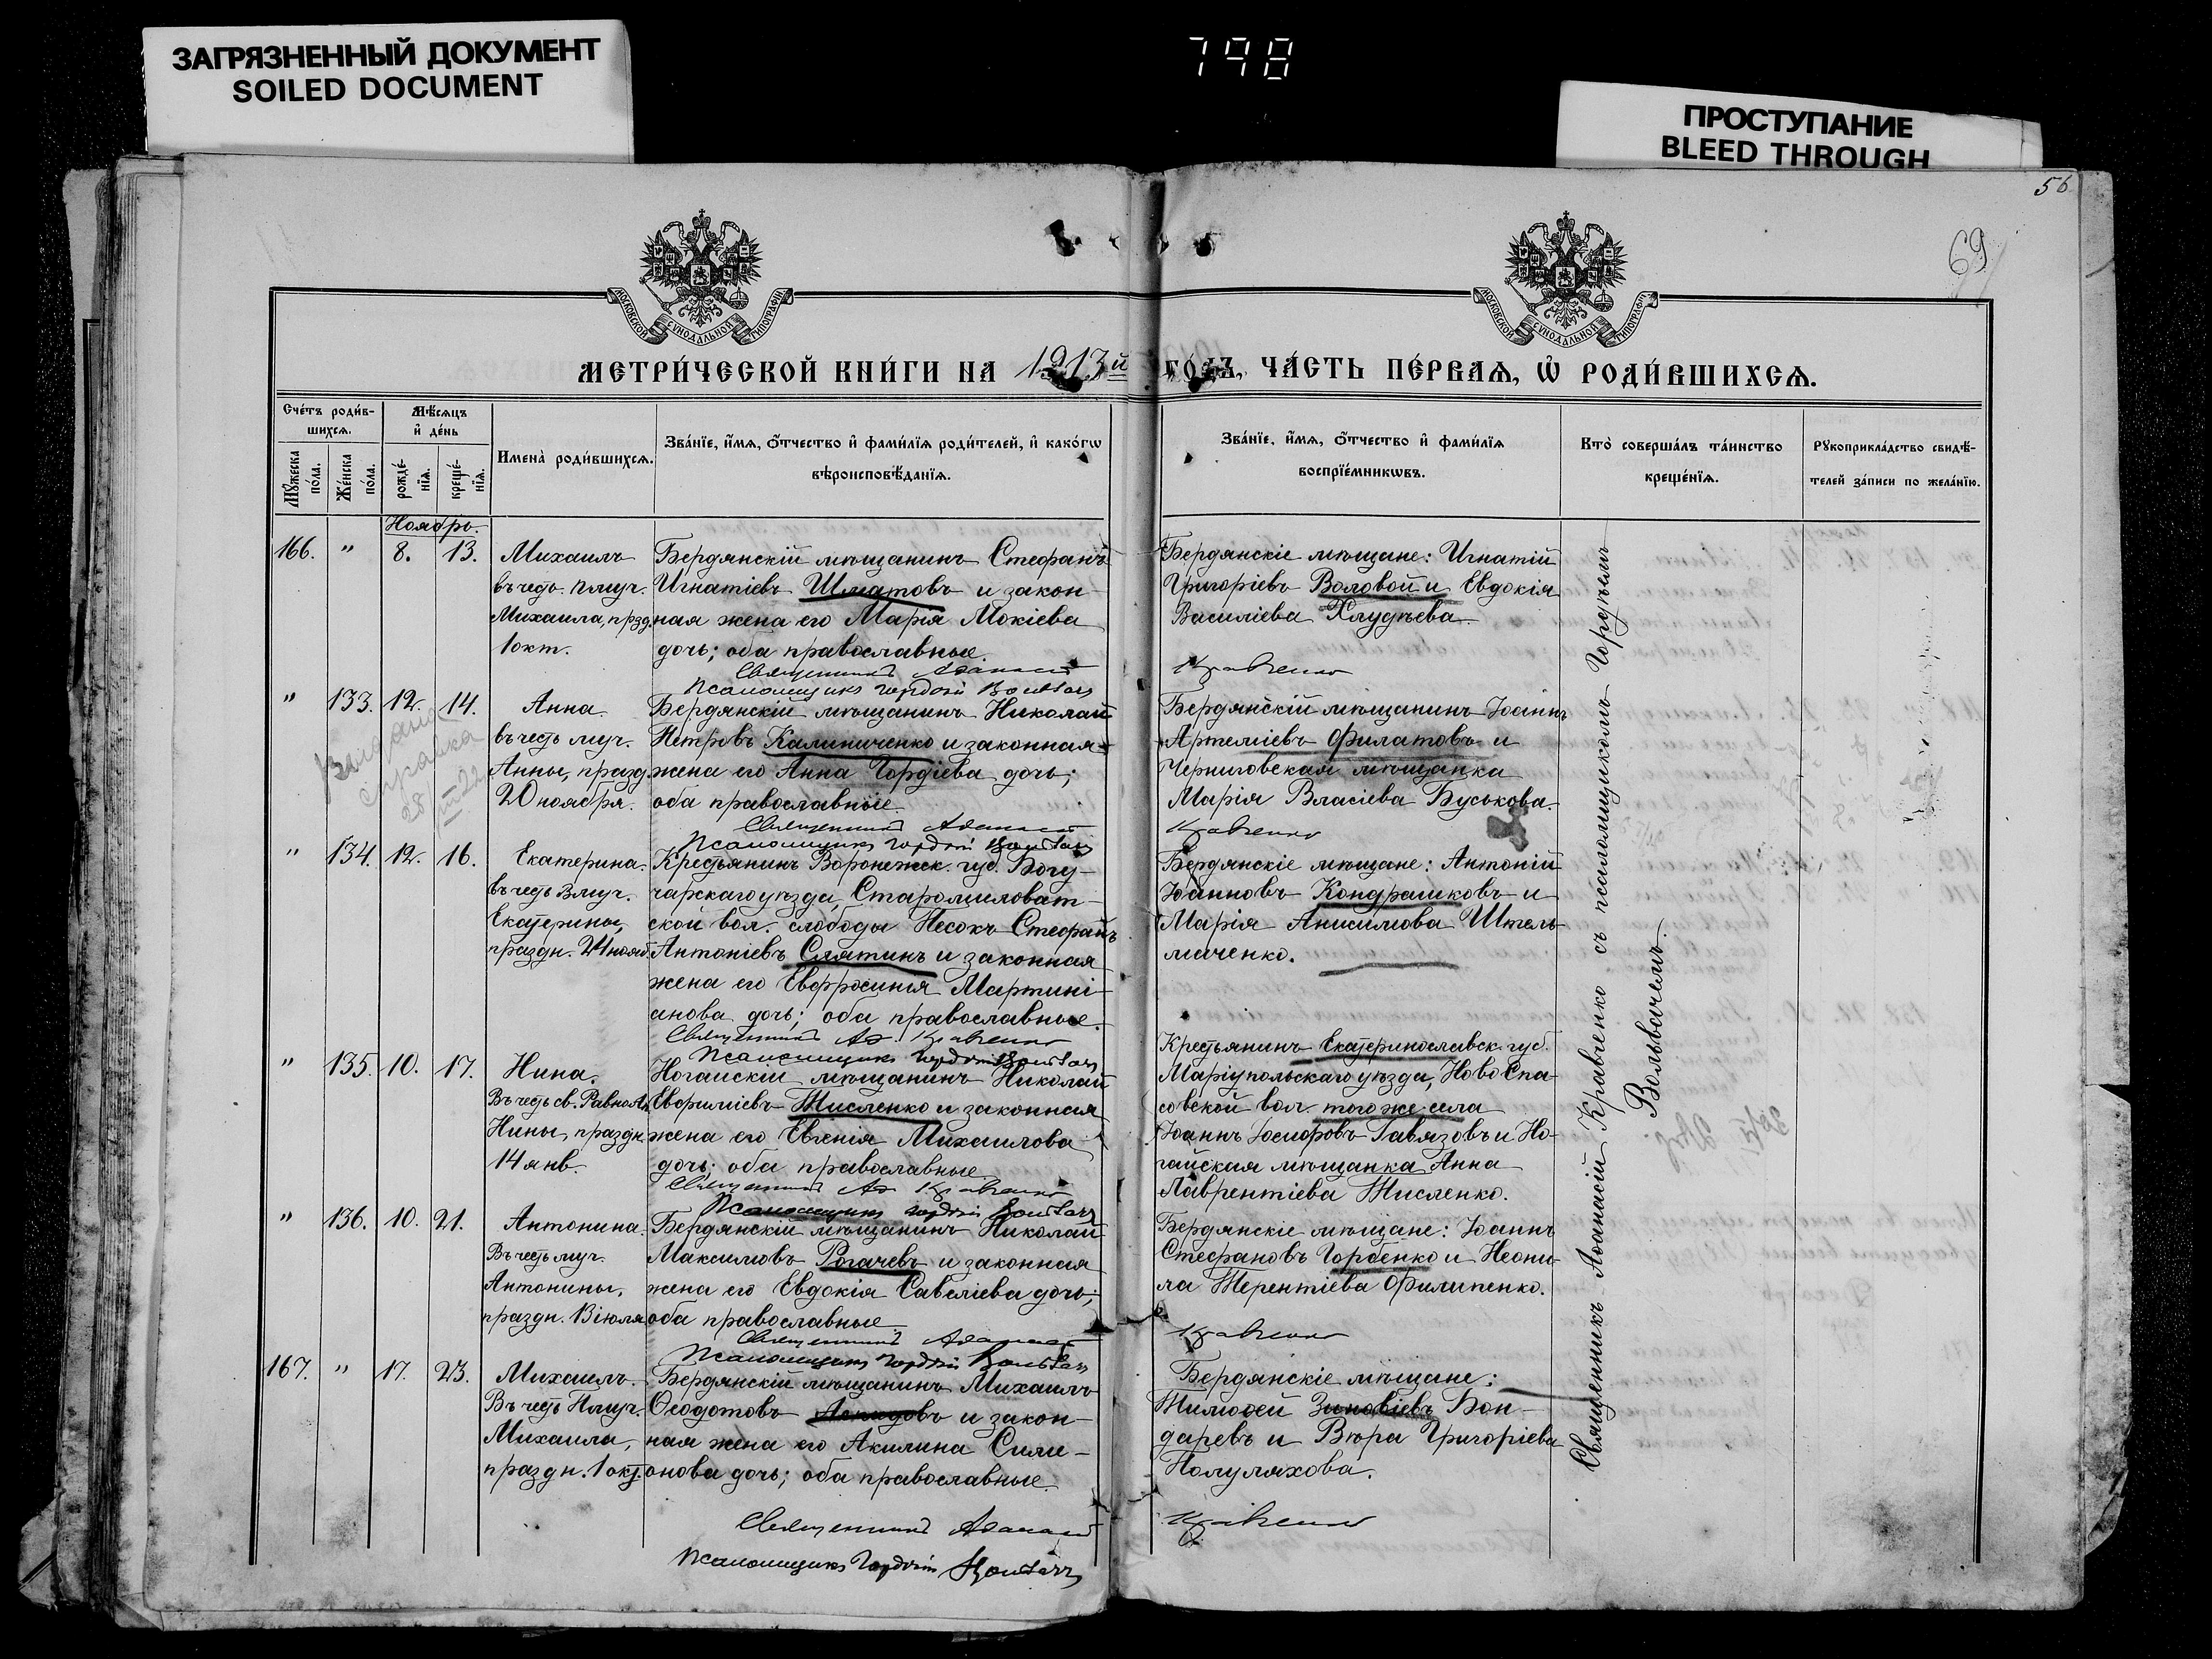 ЗАГРЯЗНЕННЫЙ ДОКУМЕНТ
SOILED DOCUMENT
798
ПРОСТУПАНИЕ
BLEED THROUGH
56
69
МОСКОВСКОЙ СѴНОДАЛЬНОЙ ТИПОГРАФІИ
МОСКОВСКОЙ СѴНОДАЛЬНОЙ ТИПОГРАФІИ
МЕТРИ́ЧЕСКОЙ КНИ́ГИ НА 1913й ГО́ДЪ, ЧА́СТЬ ПЕ́РВАѦ, Ѽ РОДИ́ВШИХСѦ.
Сче́тъ роди́в-
шихсѧ.
Мꙋ́жеска по́ла.
Же́нска по́ла.
Мѣ́сѧцъ
и҆ де́нь
рожде́-
нїѧ.
креще́-
нїѧ.
Имена̀ роди́вшихсѧ.
Зва́нїе, и҆́мѧ, ѻ҆́тчество и҆ фами́лїѧ роди́телей, и҆ како́гѡ
вѣроисповѣ́данїѧ.
Зва́нїе, и҆́мѧ, ѻ҆́тчество и҆ фами́лїѧ
воспрїе́мникѡвъ.
Кто̀ соверша́лъ та́инство
креще́нїѧ.
Рꙋкоприкла́дство свидѣ́-
телей за́писи по жела́нїю.
Ноябрь.
166. " 8. 13. Михаилъ
въ честь пмуч.
Михаила, прзд.
1 окт.
Бердянскій мѣщанинъ Стефанъ
Игнатіевъ Шматовъ и закон-
ная жена его Марія Мокіева
дочь; оба православные.
Священникъ Аѳанасій Кравченко
Псаломщикъ Гордій Вольвачъ
Бердянскіе мѣщане: Игнатій
Григоріевъ Воловой и Евдокія
Василіева Хлудѣева
" 133. 12. 14. Анна.
въ честь муч.
Анны, празд.
20 ноября.
Бердянскій мѣщанинъ Николай
Петровъ Калиниченко и законная
жена его Анна Гордіева дочь;
оба православные.
Священникъ Аѳанасій Кравченко
Псаломщикъ Гордій Вольвачъ
Бердянскій мѣщанинъ Іоаннъ
Артеміевъ Филатовъ и
Черниговская мѣщанка
Марія Власіева Буськова.
справка
" 134. 12. 16. Екатерина.
въ честь Вмуч.
Екатерины,
праздн. 24 нояб.
Крестьянинъ Воронежск. губ. Богу-
чарскаго уѣзда, Старомиловат-
ской вол. слободы Песокъ Стефанъ
Антоніевъ Слятинъ и законная
жена его Евфросинія Мартині-
анова дочь; оба православные.
Священникъ Аѳ. Кравченко
Псаломщикъ Гордій Вольвачъ
Бердянскіе мѣщане: Антоній
Іоанновъ Кондрашковъ и
Марія Анисимова Штель-
маченко.
" 135. 10. 17. Нина.
Въ честь св. РавноАп.
Нины, праздн.
14 янв.
Ногайскій мѣщанинъ Николай
Евфиміевъ Тисленко и законная
жена его Евгенія Михаилова
дочь; оба православные
Священникъ Аѳ. Кравченко
Псаломщикъ Гордій Вольвачъ
Крестьянинъ Екатеринославск. губ.
Маріупольскаго уѣзда, НовоСпа-
совской вол. того же села
Іоаннъ Іосифовъ Гавязовъ и Но-
гайская мѣщанка Анна
Лаврентіева Тисленко.
" 136. 10. 21. Антонина.
Въ честь муч.
Антонины,
праздн. 13 іюня
Бердянскій мѣщанинъ Николай
Максимовъ Рогачевъ и законная
жена его Евдокія Савеліева дочь;
оба православные
Священникъ Аѳанасій Кравченко
Псаломщикъ Гордій Вольвачъ
Бердянскіе мѣщане: Іоаннъ
Стефановъ Горбенко и Неони-
ла Терентіева Филипенко.
167. " 17. 23. Михаилъ.
Въ честь Пмуч.
Михаила,
праздн. 1 окт.
Бердянскій мѣщанинъ Михаилъ
Ѳеодотовъ и закон-
ная жена его Акилина Симе-
онова дочь; оба православные.
Священникъ Аѳанасій Кравченко
Псаломщикъ Гордій Вольвачъ
Бердянскіе мѣщане:
Тимоѳей Зиновіевъ Бон-
даревъ и Вѣра Григоріева
Полуляхова.
Священникъ Аѳанасій Кравченко съ псаломщикомъ Гордѣемъ
Вольвачемъ.